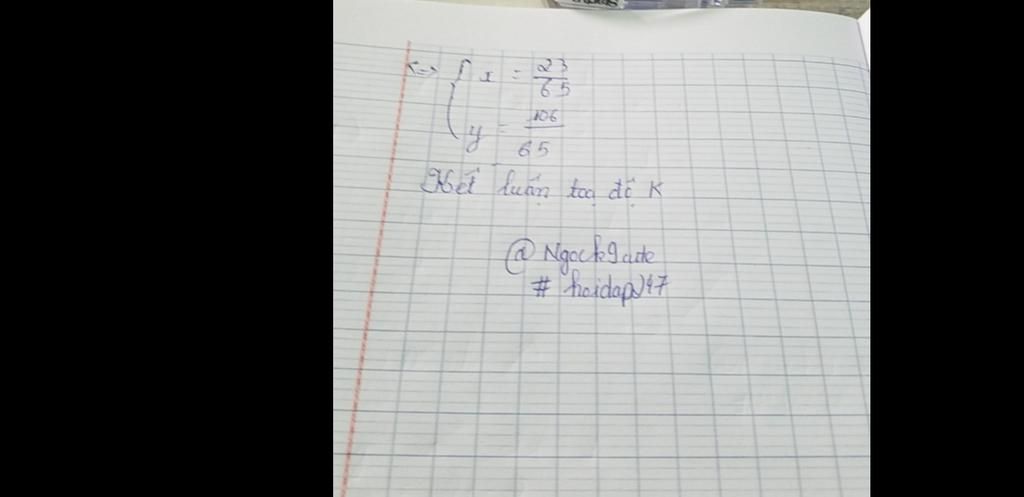 <=> { x = 23/65
y = 106/65
Kết luận toạ độ K
@ Ngock9cute
# hoidap247